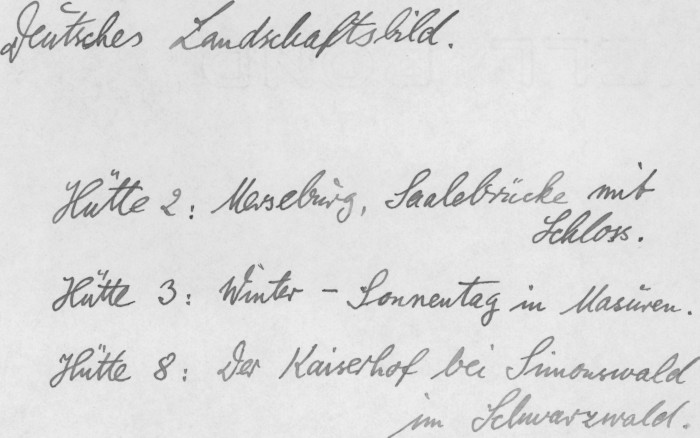 Deutsches Landschaftsbild.
Hütte 2: Merseburg, Saalebrücke mit
Schloss.
Hütte 3: Winter - Sonnentag in Masuren.
Hütte 8: Der Kaiserhof bei Simonswald
im Schwarzwald.